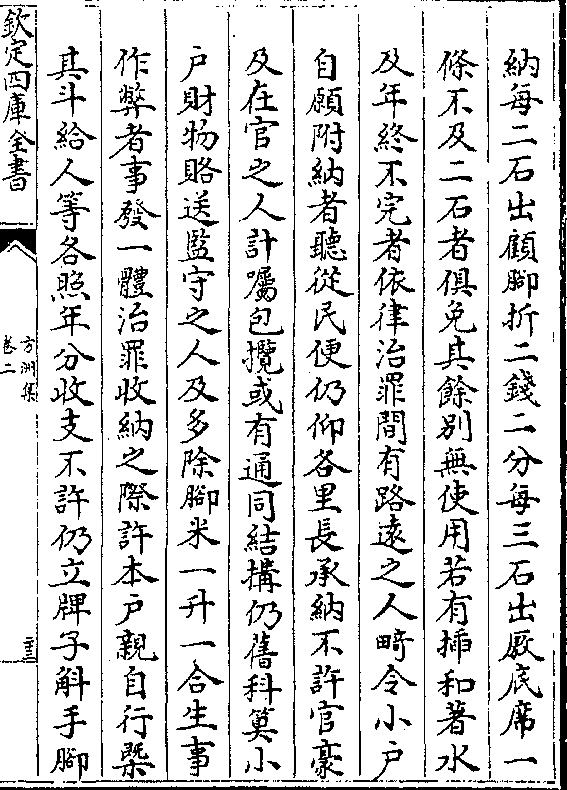 納每二石出顧腳折二錢二分每三石出厫底席一
條不及二石者俱免其餘別無使用若有插和著水
及年終不完者依律治罪間有路遠之人畸令小户
自願附納者聽從民便仍仰各里長承納不許官豪
及在官之人計囑包攬或有通同結搆仍舊科筭小
户財物賂送監守之人及多除腳米一升一合生事
作弊者事發一體治罪收納之際許本户親自行槩
其斗給人等各照年分收支不許仍立牌子斛手腳
欽定四庫全書
方洲集
卷二